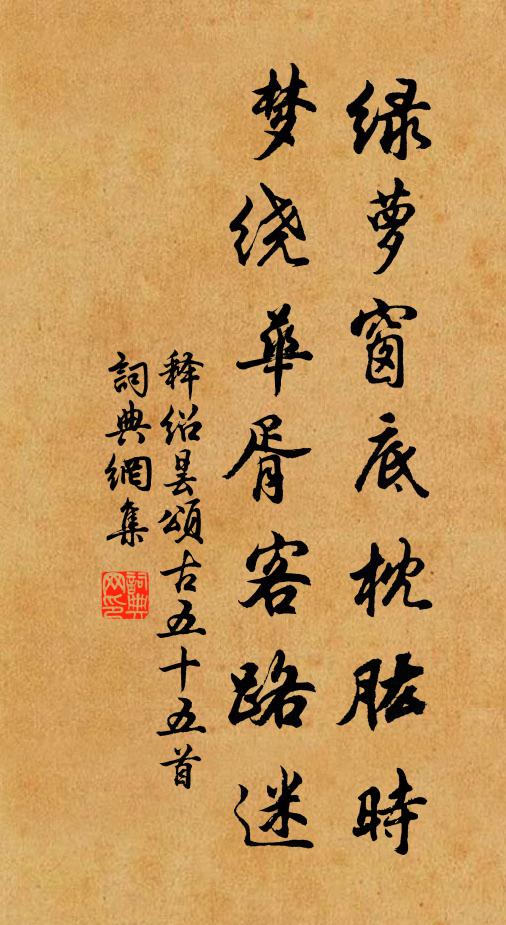 绿萝窗底枕肱时
梦绕华胥客路迷
释绍昙颂古五十五首
词典网集
词典网印